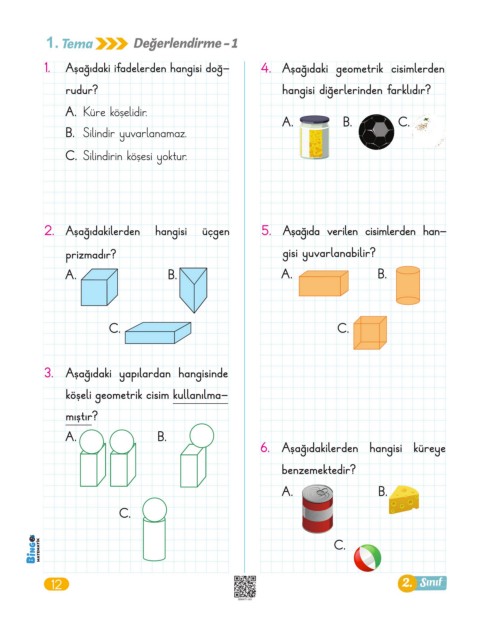 1. Tema Değerlendirme - 1
1. Aşağıdaki ifadelerden hangisi doğ-
rudur?
A. Küre köşelidir.
B. Silindir yuvarlanamaz.
C. Silindirin köşesi yoktur.
2. Aşağıdakilerden hangisi üçgen
prizmadır?
A. B.
C.
3. Aşağıdaki yapılardan hangisinde
köşeli geometrik cisim kullanılma-
mıştır?
A. B.
C.
4. Aşağıdaki geometrik cisimlerden
hangisi diğerlerinden farklıdır?
A. B. C.
5. Aşağıda verilen cisimlerden han-
gisi yuvarlanabilir?
A. B.
C.
6. Aşağıdakilerden hangisi küreye
benzemektedir?
A. B.
C.
BİNGO
MATEMATİK
12
2. Sınıf